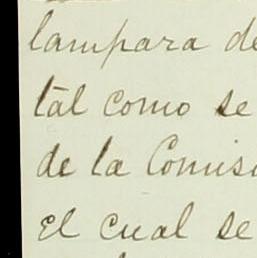 lampara de
tál como se
de la Comis
El cual se